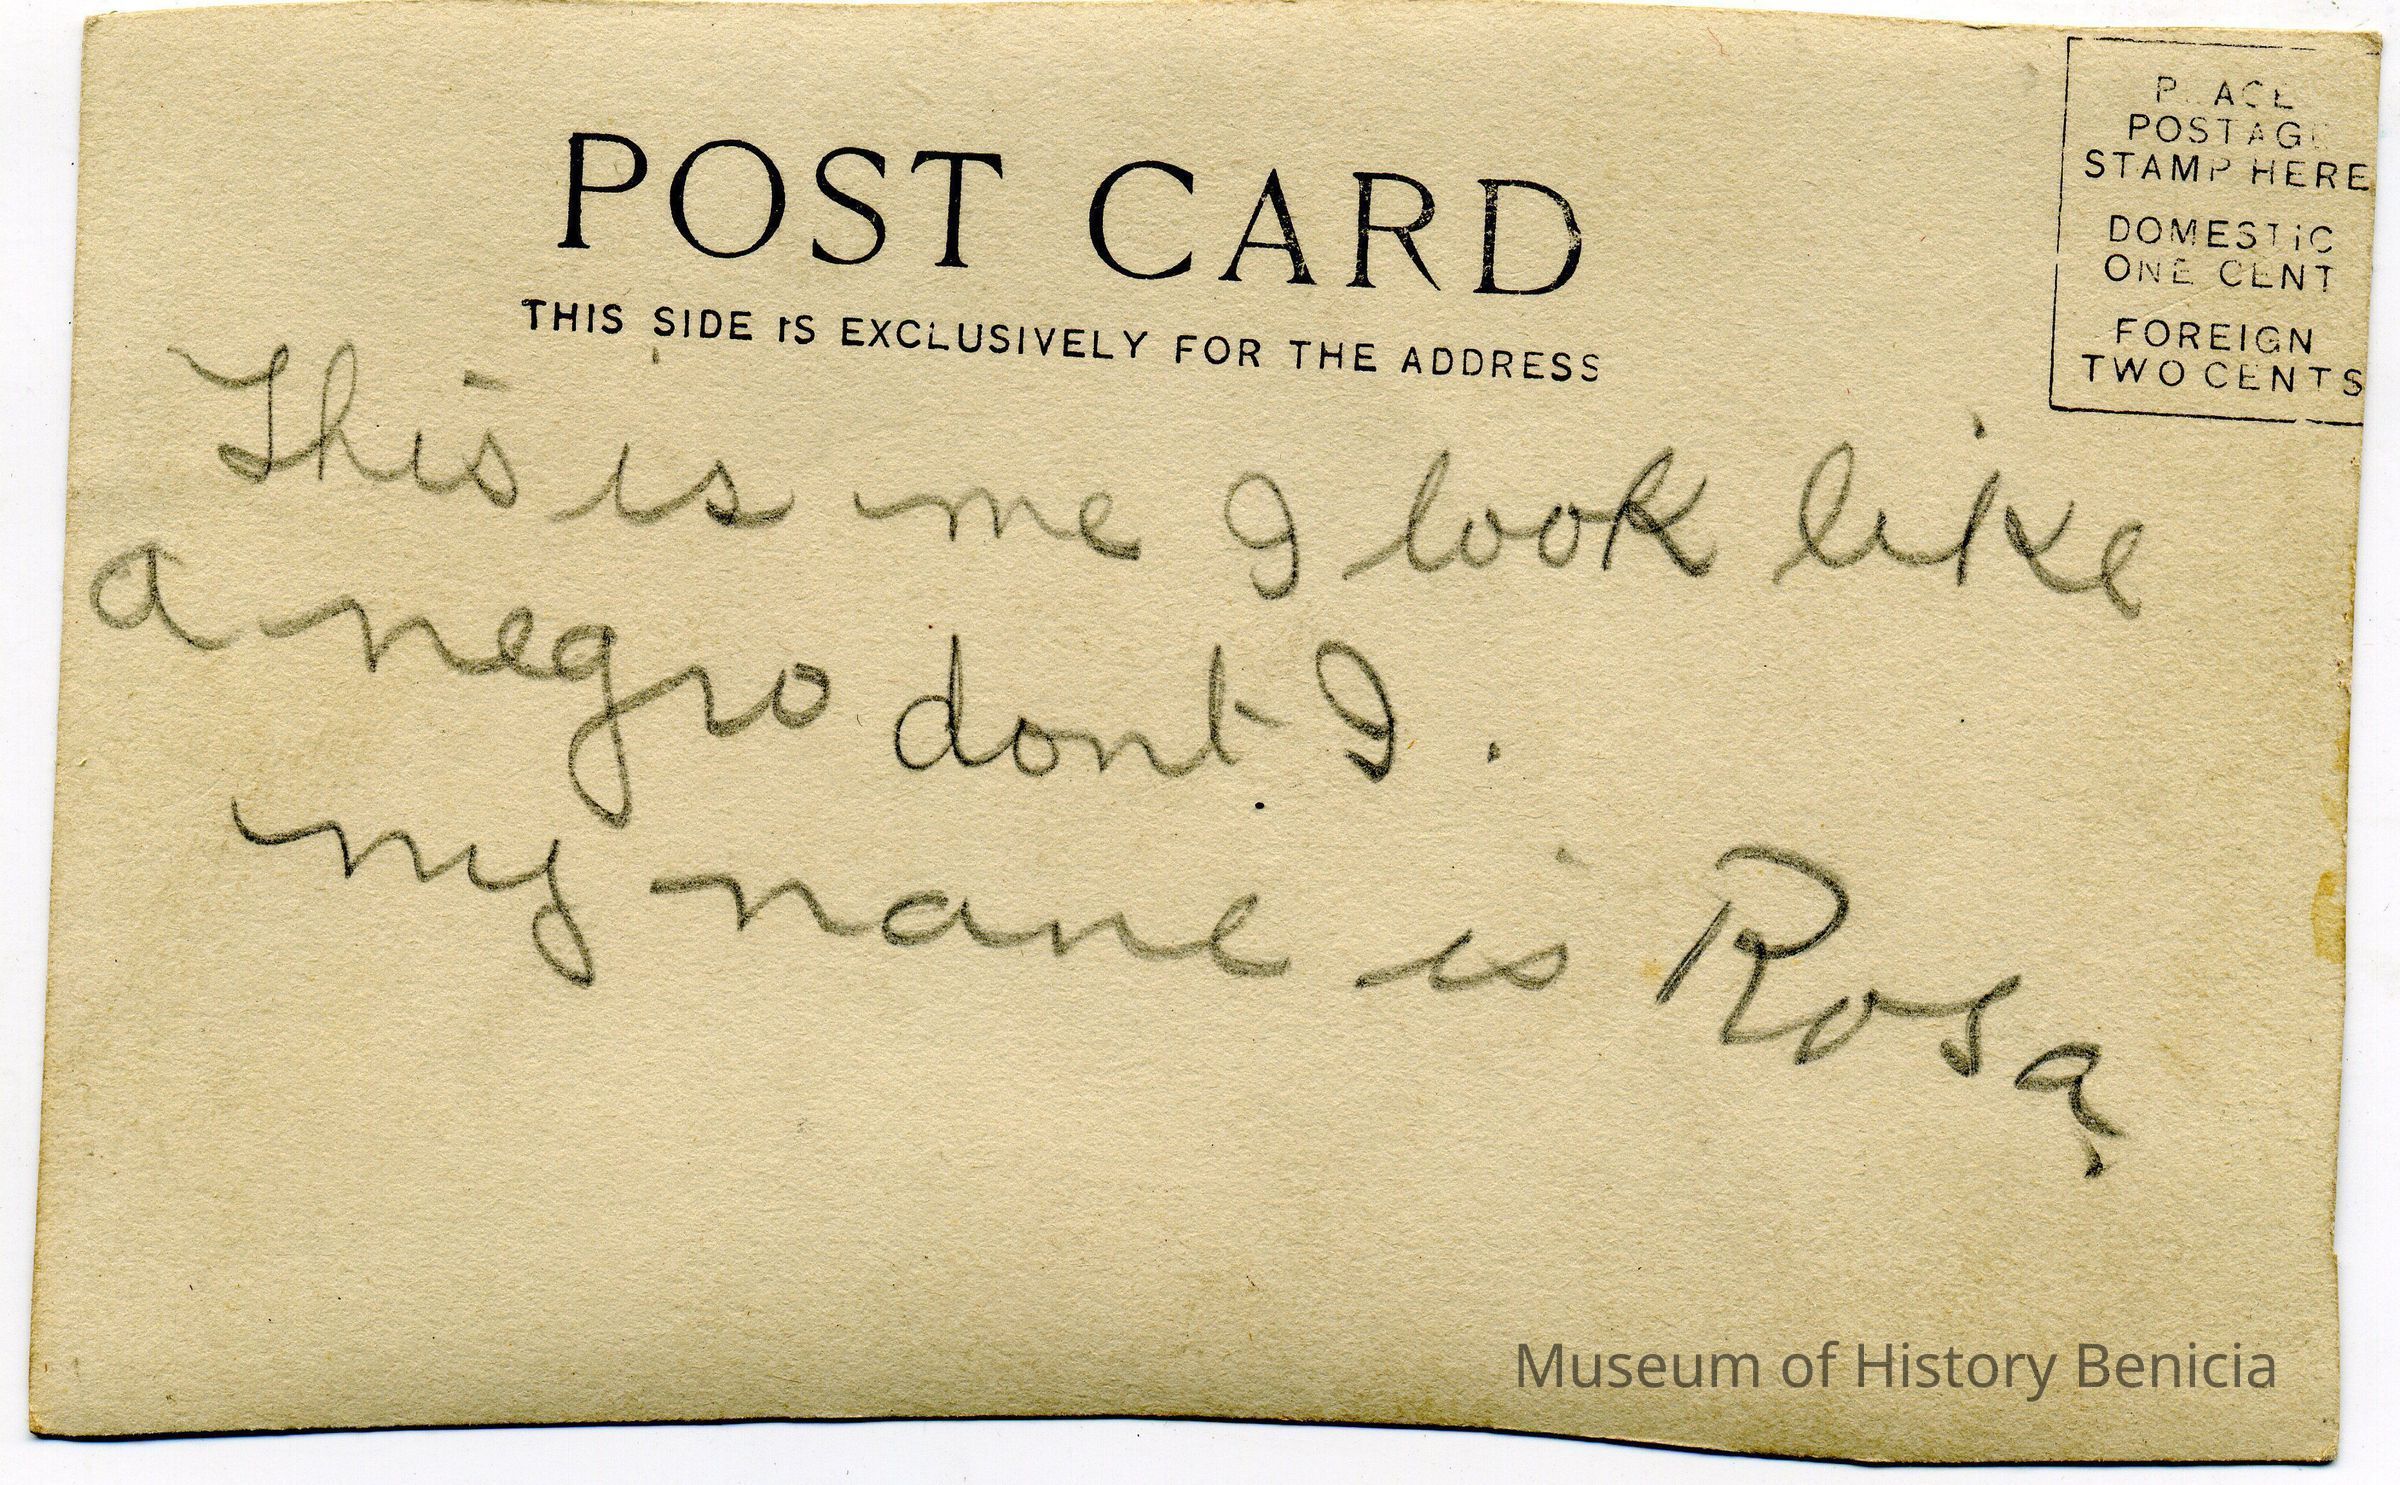 POST CARD
THIS SIDE IS EXCLUSIVELY FOR THE ADDRESS
PLACE
POSTAGE
STAMP HERE
DOMESTIC
ONE CENT
FOREIGN
TWO CENTS
This is me I look like
a negro dont I.
my name is Rosa.
Museum of History Benicia